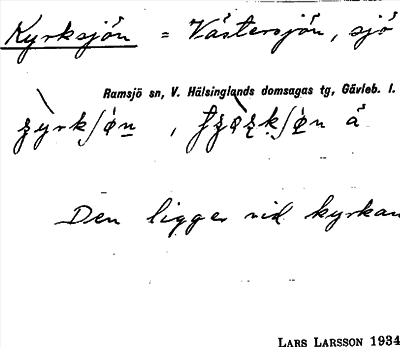 Kyrksjön = Västersjön, sjö
Ramsjö sn, V. Hälsinglands domsagas tg, Gävleb. l.
Den ligger vid kyrkan
LARS LARSSON 1934